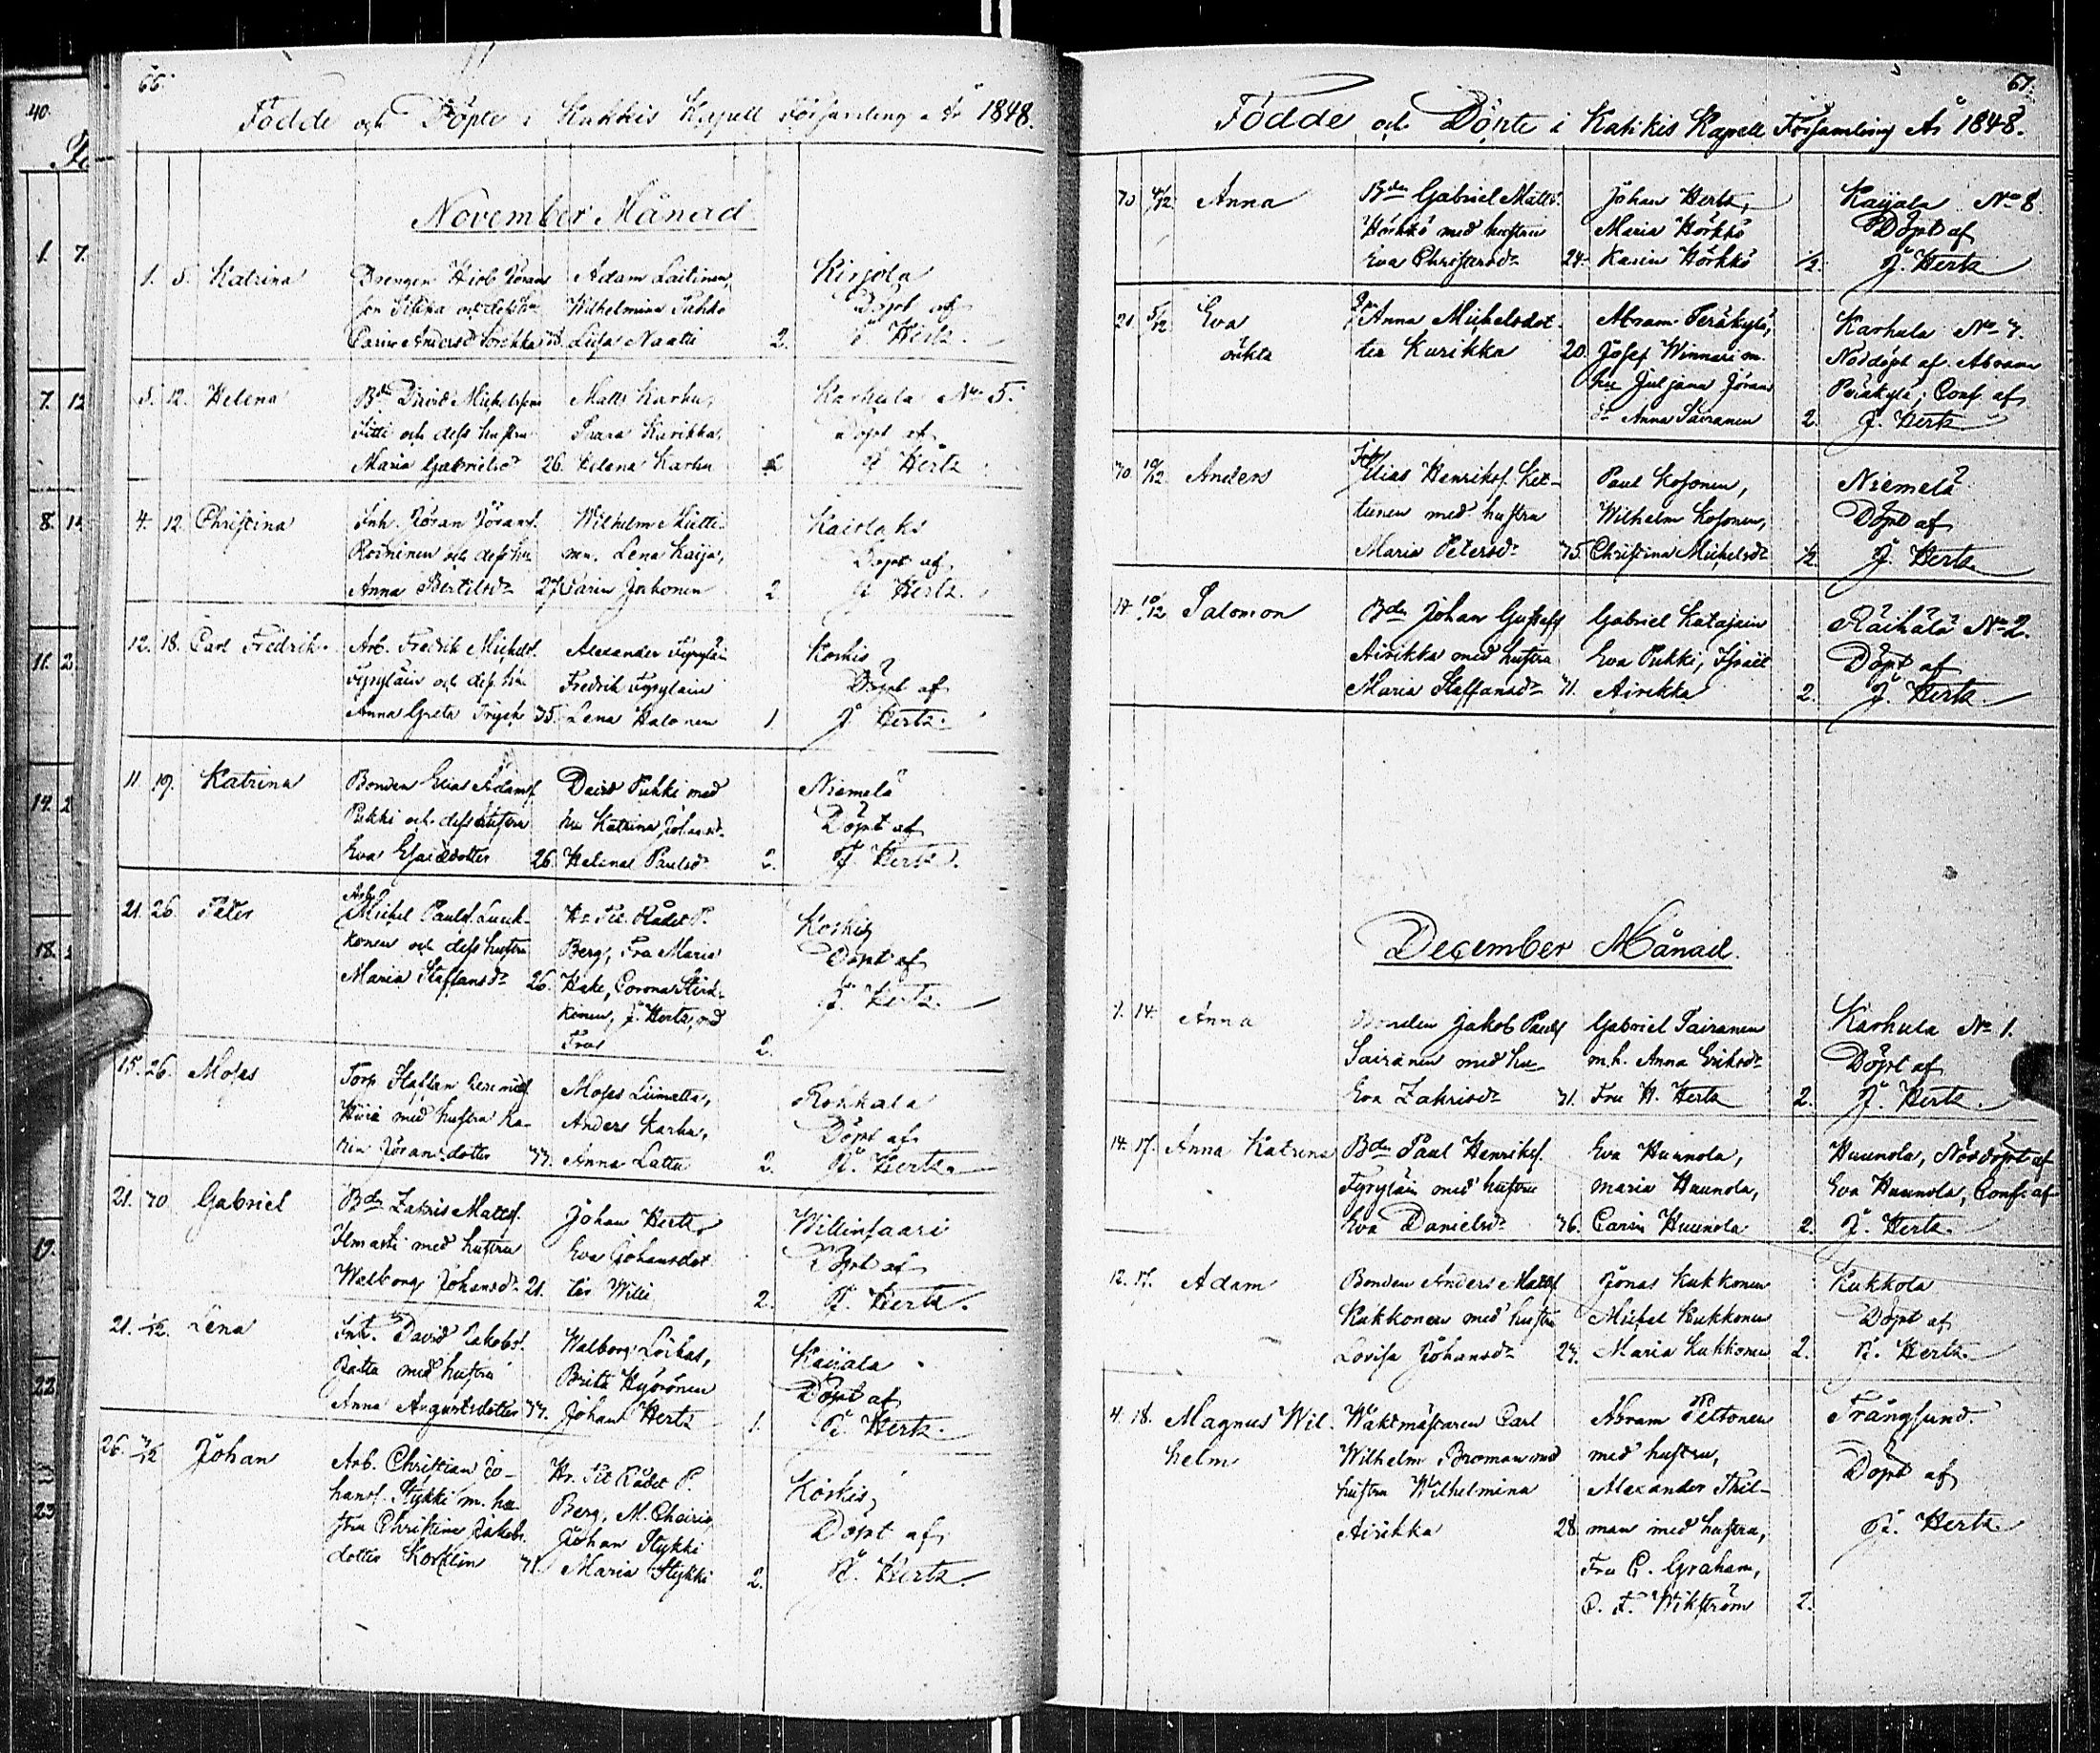 66.
Födde och Döpte i Kakkis Kapell Församling År 1848.
November Månad
1. 5. Katrina
Drengen
Carin Andersd:
Adam Laitinen,
Wilhelmina
Lisa Naatti 2.
Kirjola
Döpt af
J. Hertz
5. 12. Helena
Bd: David Michelsson
Sitti och dess hustru
Maria Gabrielsdr 26.
Matts Karhu,
Saara Kurikka,
Helena Karhu
Karhula No 5.
Döpt af
J. Hertz
4. 12. Christina
Inh. Jöran Jörans.
och dess hu
Anna Bertilsdr 27
Wilhelm Mutti-
nen. Lena Kaija,
Carin Jakonen 2
Kaislaks
Döpt af
J. Hertz.
12. 18. Carl Fredrik.
Arb. Fredrik Michels.
Fyryläin och dess hu
Anna Greta Frysk 35.
Alexander Fyryläin
Fredrik Fyryläin
Lena Halonen 1.
Koskis
Döpt af
J. Hertz.
11. 19. Katrina
Bonden Elias Adamss
Pukki och dess hustru
Eva Esaiedotter 26.
David Pukki med
hu Katrina Johansd.
Helena Paulsdr 2.
Niemelä
Döpt af
J. Hertz.
21. 26. Peter
Arb.
Michel Pauls. Luuk-
konen och dess hustru
Maria Staffansdr 26.
Hr. Tit. Rådet P.
Berg, Fru Maria
Hake,
J. Hertz, med
Fru 2.
Koskis
Döpt af
J. Hertz.
15. 26. Moses
Torp Staffan
med hustru Ka-
rin Jöransdotter 37.
Moses Liimatta,
Anders Karhu,
Anna Lattu 2.
Rokkala
Döpt af
J. Hertz.
21. 30 Gabriel
Bdn Zakris Mattss.
Ilmasti med hustru
Walborg Johansdr 21.
Johan Hertz,
Eva Johansdot
ter Willi 2.
Willinsaari
Döpt af
J. Hertz.
21. 1/12. Lena
Inh. David Jakobss.
Ratta med hustru
Anna Augustsdotter 37.
Walborg Loikas,
Brita Hyvönen
Johan Hertz 1.
Kaijala
Döpt af
J. Hertz.
26. 3/12 Johan
Arb. Christian Jo-
hanss. Stykki m. hu
stru Christina Jakobs
dotter Korklin 31.
Hr. Tit Rådet P.
Berg, M. Choiris
Johan Stykki
Maria Stykki 2.
Koskis,
Döpt af
J. Hertz.
67.
Födde och Döpte i Kakkis Kapell Församling År 1848.
30 4/12 Anna
Bden Gabriel Matts.
Hörkkö med hustru
Eva Christersdr 24.
Johan Hertz,
Maria Hörkkö
Karin Hörkkö 1/2.
Kaijala No 8.
Döpt af
J. Hertz
21. 5/12 Eva
oäkta
Anna Michelsdot
ter Kurikka 20.
Abram Peräkylä,
Josef Winnari m.
hu Juljana Jörans
dr Anna Sairanen 2.
Karhula No 7.
Nöddöpt af Abram
Peräkylä; Conf. af
J. Hertz
30. 10/12 Anders
Elias Henrikss. Ket-
tunen med hustru
Maria Petersdr 35.
Paul Kosonen,
Wilhelm Kosonen,
Christina Michelsdr 1/2.
Niemelä
Döpt af
J. Hertz
14 10/12 Salomon
Bdn Johan Gustafs
Airikka med hustru
Maria Staffansdr 31.
Gabriel Katajain
Eva Pukki, Israel
Airikka 2.
Räihälä No 2.
Döpt af
J. Hertz
December Månad.
7. 14. Anna
Bonden Jakob Pauls
Sairanen med hu
Eva Zakrisdr 31.
Gabriel Sairanen
m.h. Anna Eriksdr
Fru H. Hertz 2.
Karhula No 1.
Döpt af
J. Hertz.
14. 17. Anna Katrina
Bdn Paul Henrikss.
Fyryläin med hustru
Eva Danielsdr 36.
Eva Huunola,
Maria Huunola,
Carin Huunola 2.
Huunola, Nöddöpt af
Eva Huunola, Conf. af
J. Hertz.
12. 17. Adam
Bonden Anders Mattss
Kukkonen med hustru
Lovisa Johansdr 27.
Jonas Kukkonen
Michel Kukkonen
Maria Kukkonen 2.
Kukkola
Döpt af
J. Hertz.
4. 18. Magnus Wil-
helm
Waktmästaren Carl
Wilhelm Broman med
hustru Wilhelmina
Airikka 28
Abram Peltonen
med hustru,
Alexander Thil-
man med hustru,
Fru C. Graham,
C. F. Wikström 2.
Trångsund.
Döpt af
J. Hertz.